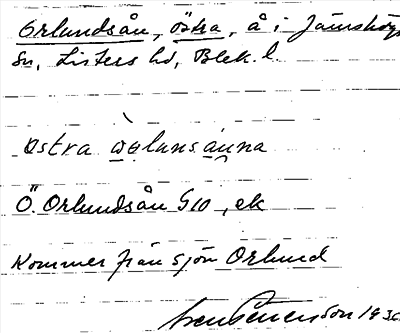 Orlundsån, Östra, å i Jämshögs
sn, Listers hd, Blek. l.
östra
Ö. Orlundsån G10, ek
Kommer från sjön Orlund
Sven Benson 1930